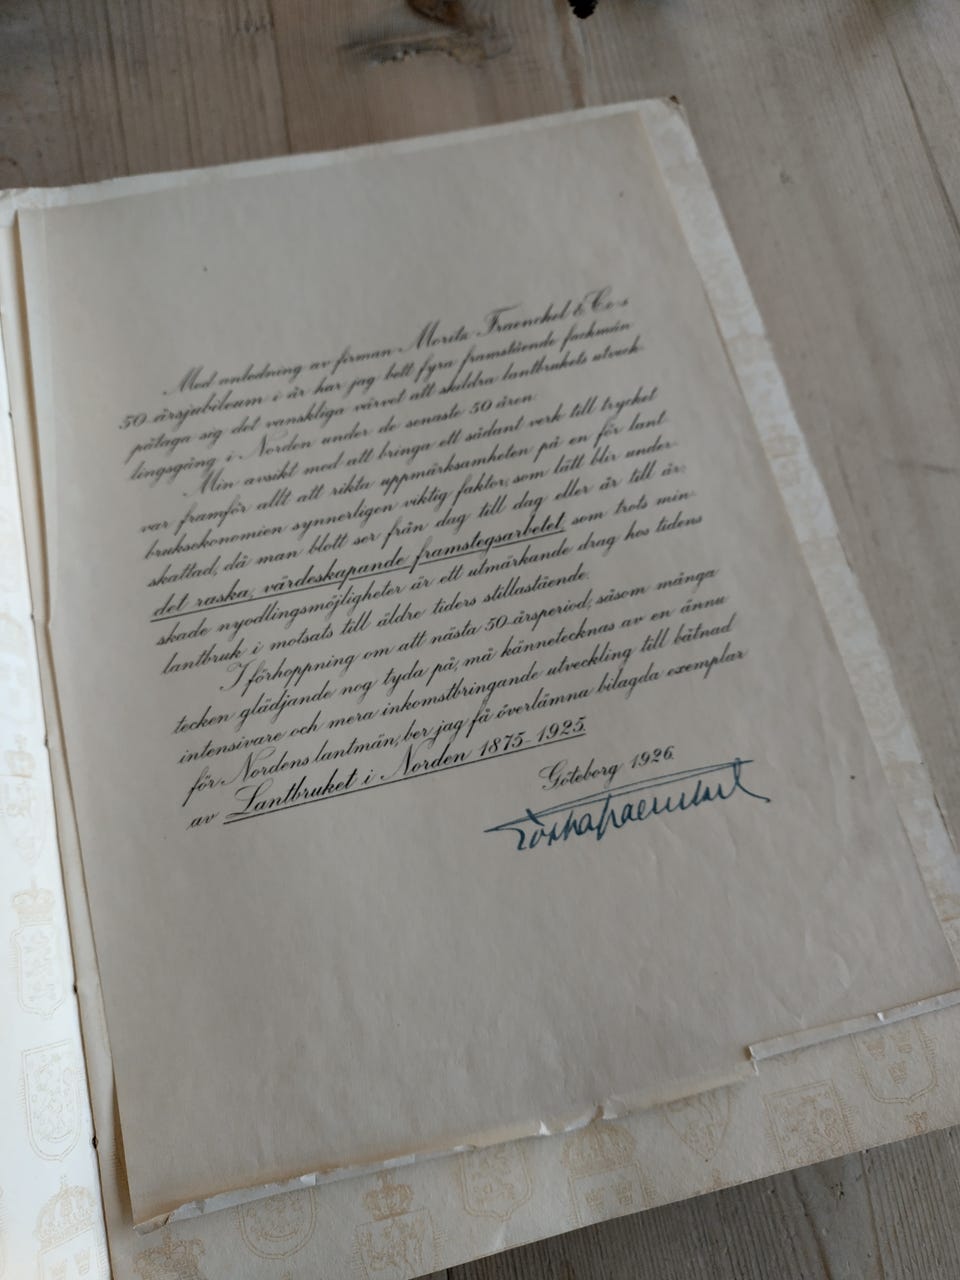 Med anledning av firman Moritz Fraenckel & Co:s
50-årsjubileum i år har jag bett fyra framstående fackmän
påtaga sig det vanskliga värvet att skildra lantbrukets utveck-
lingsgång i Norden under de senaste 50 åren.
Min avsikt med att bringa ett sådant verk till trycket
var framför allt att rikta uppmärksamheten på en för lant-
bruksekonomien synnerligen viktig faktor, som lätt blir under-
skattad, då man blott ser från dag till dag eller år till år:
det raska, värdeskapande framstegsarbetet, som trots min-
skade nyodlingsmöjligheter är ett utmärkande drag hos tidens
lantbruk i motsats till äldre tiders stillastående.
I förhoppning om att nästa 50-årsperiod, såsom många
tecken glädjande nog tyda på, må kännetecknas av en ännu
intensivare och mera inkomstbringande utveckling till båtnad
för Nordens lantmän, ber jag få överlämna bilagda exemplar
av Lantbruket i Norden 1875-1925.
Göteborg 1926.